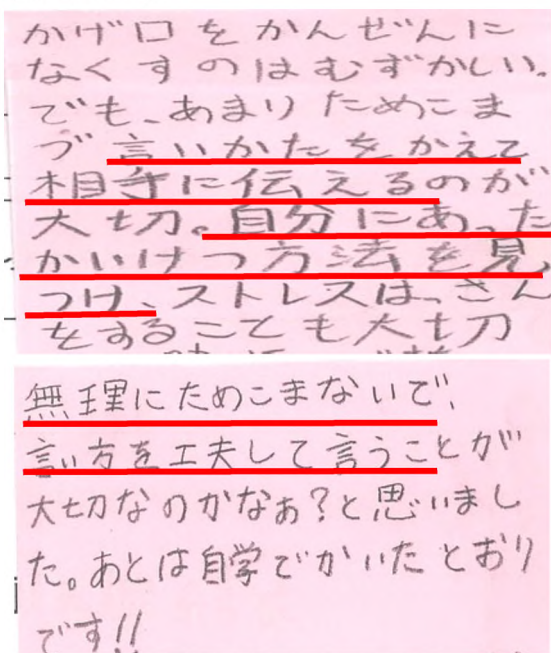 かげ口をかんぜんに
なくすのはむずかしい。
でも、あまりためこま
づ言いかたをかえて
相手に伝えるのが
大切。自分にあった
かいけつ方法を見
つけ、ストレスはっさん
をすることも大切
無理にためこまないで、
言い方を工夫して言うことが
大切なのかなぁ？と思いまし
た。あとは自学でかいたとおり
です!!